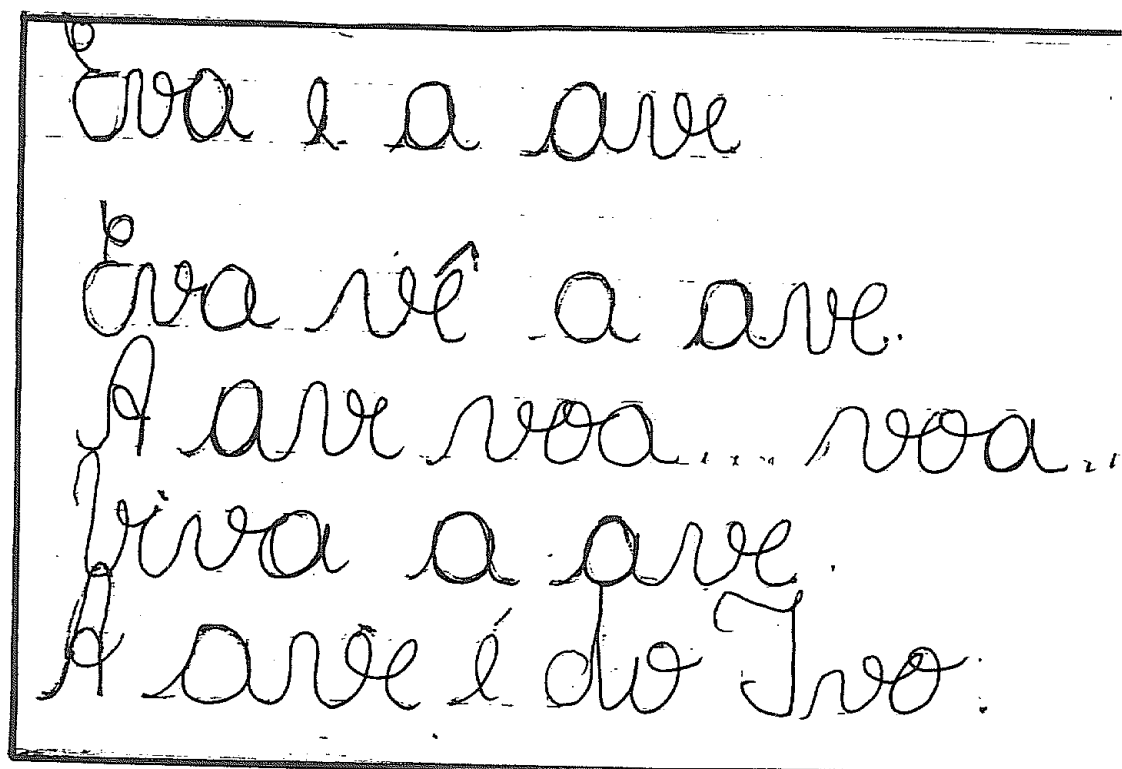 Eva e a ave
Eva vê a ave.
A ave voa... voa..
Viva a ave.
A ave é do Ivo.